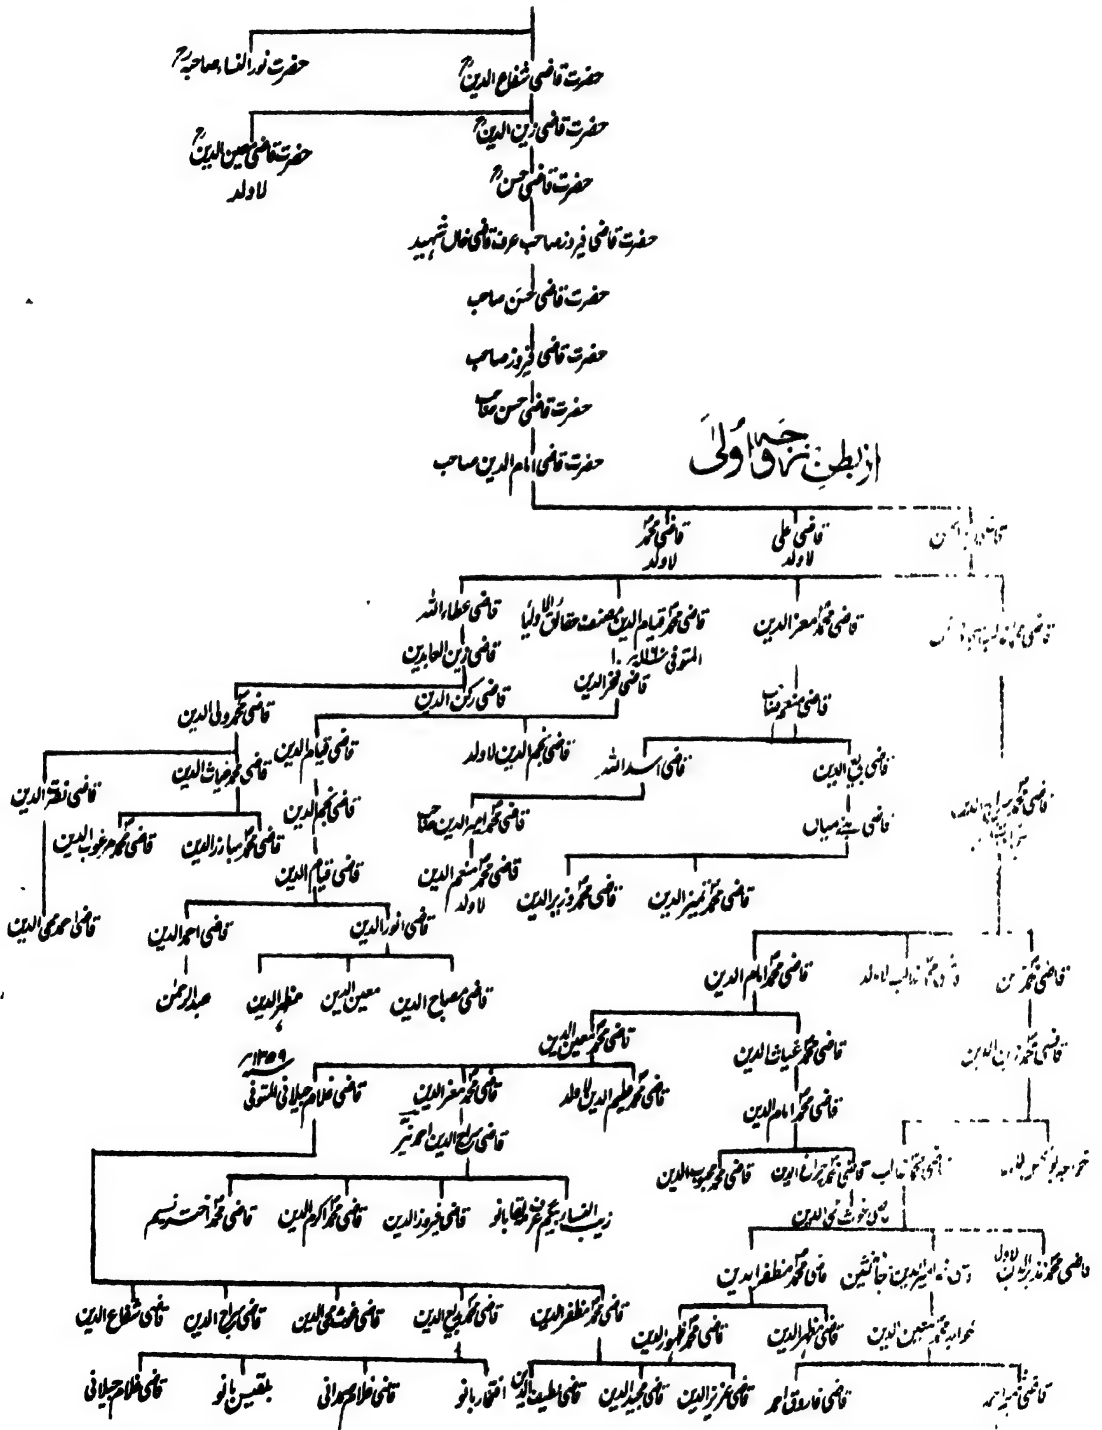 حضرت نور النساء صاحبہؒ
حضرت قاضی شفاع الدینؒ
حضرت قاضی زین الدینؒ
حضرت قاضی معین الدینؒ
لاولد
حضرت قاضی حسنؒ
حضرت قاضی فیروز صاحب عرف قاضی خاں شہید
حضرت قاضی حسن صاحب
حضرت قاضی فیروز صاحب
حضرت قاضی حسن صاحب
حضرت قاضی امام الدین صاحب
از بطن زوجہ اولیٰ
قاضی علی
لاولد
قاضی محمد
لاولد
قاضی محمد معز الدین
قاضی محمد قیام الدین مصنف حقائق الاولیا
المتوفی
قاضی عطاء اللہ
قاضی زین العابدین
قاضی فخر الدین
قاضی رکن الدین
قاضی منعم صاحب
قاضی محمد ولی الدین
قاضی قیام الدین
قاضی نجم الدین لاولد
قاضی اسد اللہ
قاضی بدیع الدین
قاضی محمد غیاث الدین
قاضی نصر الدین
قاضی نجم الدین
قاضی محمد امیر الدین صاحب
قاضی بنے میاں
قاضی محمد سراج الدین
قاضی محمد مرغوب الدین
قاضی محمد مبارز الدین
قاضی قیام الدین
قاضی محمد منعم الدین
لاولد
قاضی محمد وزیر الدین
قاضی محمد تمیز الدین
قاضی احمد محی الدین
قاضی احمد الدین
قاضی انور الدین
قاضی محمد امام الدین
قاضی محمد
عبدالرحمٰن
مظہر الدین
معین الدین
قاضی مصباح الدین
قاضی محمد معین الدین
قاضی محمد غیاث الدین
قاضی محمد زین الدین
قاضی غلام جیلانی المتوفی ۱۳۵۹ھ
قاضی محمد معز الدین
قاضی محمد عظیم الدین لاولد
قاضی محمد امام الدین
قاضی سراج الدین احمد نیر
قاضی محمد محبوب الدین
قاضی محمد چراغ الدین
قاضی محمد غالب
قاضی غوث محی الدین
قاضی محمد اختر نسیم
قاضی محمد اکرم الدین
قاضی فیروز الدین
زیب النساء بیگم عرف
قاضی محمد مظفر الدین
امیر الدین جانشین
قاضی محمد نذیر الدین لاولد
قاضی شفاع الدین
قاضی سراج الدین
قاضی غوث محی الدین
قاضی محمد بدیع الدین
قاضی محمد مظفر الدین
قاضی محمد ظہور الدین
قاضی مظہر الدین
خواجہ محمد معین الدین
قاضی غلام جیلانی
بلقیس بانو
قاضی غلام صمدانی
افتخار بانو
قاضی لطیف الدین
قاضی مجید الدین
قاضی عزیز الدین
قاضی فاروق احمد
قاضی احمد